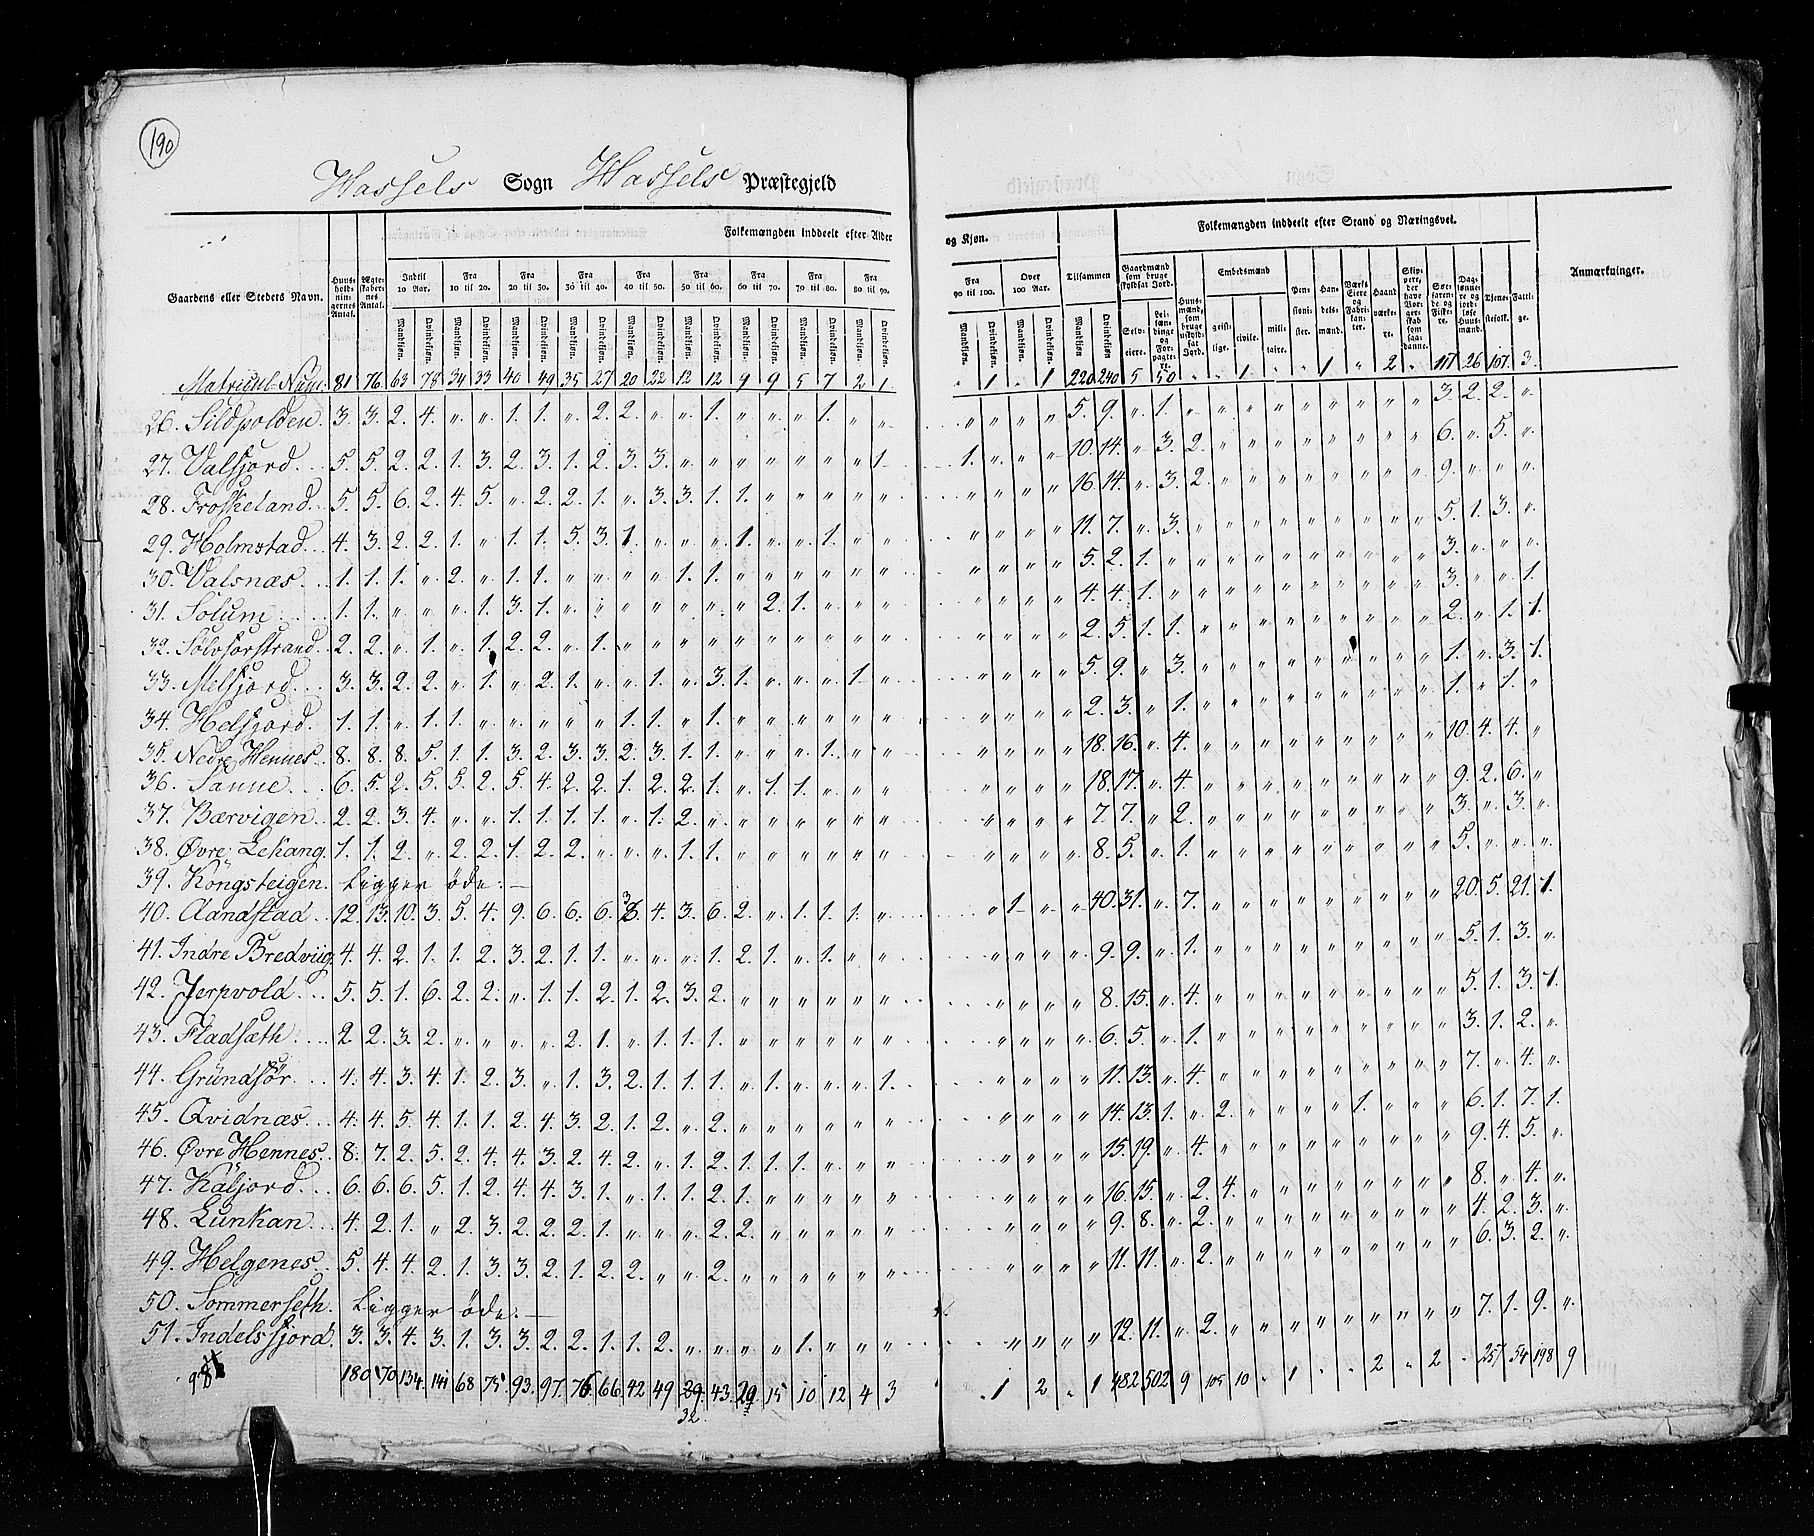 190
Hassels Sogn Hassels Præstegjeld
Folkemængden inddeelt efter Alder og Kjøn. Folkemængden inddeelt efter Stand og Næringsvei.
Gaardens eller Steders Navn. Huus-holdningernes Antal. Ægteskabernes Antal. Indtil 10 Aar. Fra 10 til 20. Fra 20 til 30. Fra 30 til 40. Fra 40 til 50. Fra 50 til 60. Fra 60 til 70. Fra 70 til 80. Fra 80 til 90. Fra 90 til 100. Over 100 Aar. Tilsammen Anmærkninger.
Matricul Num: 81 76 63 78 34 33 40 49 35 27 20 22 12 12 9 9 5 7 2 1 „ 1 „ 1 220 240 5 50 „ „ 1 „ „ 1 „ 2 „ 117 26 107 3
26. Sildpolden 3. 3. 2. 4. „ „ 1. 1. „ 2. 2. „ „ 1. „ „ „ 1. „ „ „ „ „ „ 5. 9. „ 1. „ „ „ „ „ „ „ „ „ 3. 2. 2. „
27. Valfjord 5. 5. 2. 2. 1. 3. 2. 3. 1. 2. 3. 3. „ „ „ „ „ „ „ 1. 1. „ „ „ 10. 14. „ 3. 2. „ „ „ „ „ „ „ „ 6. „ 5. „
28. Froskeland 5. 5. 6. 2. 4. 5. „ 2. 2. 1. „ 3. 3. 1. 1. „ „ „ „ „ „ „ „ „ 16. 14. „ 3. 2. „ „ „ „ „ „ „ „ 9. „ „ „
29. Holmstad 4. 3. 2. 2. 1. „ 1. 1. 5. 3. 1. „ „ „ 1. „ „ 1. „ „ „ „ „ „ 11. 7. „ 3. „ „ „ „ „ „ „ „ „ 5. 1. 3. „
30. Valsnæs 1. 1. 1. „ 2. „ 1. 1. „ „ „ „ 1. 1. „ „ „ „ „ „ „ „ „ „ 5. 2. 1. „ „ „ „ „ „ „ „ „ „ 3. „ „ „
31. Solum 1. 1. „ „ „ 1. 3. 1. „ „ „ „ „ „ „ 2. 1. „ „ „ „ „ „ „ 4. 4. 1. „ „ „ „ „ „ „ „ „ „ 3. „ „ 1.
32. Sølvforstrand 2. 2. „ 1. „ 1. 2. 2. „ 1. „ „ „ „ „ „ „ „ „ „ „ „ „ „ 2. 5. 1. 1. „ „ „ „ „ „ „ „ „ 2. „ 1. 1.
33. Melfjord 3. 3. 2. 2. „ 1. „ 2. 1. „ „ 1. „ 3. 1. „ „ „ 1. „ „ „ „ „ 5. 9. „ 3. „ „ „ „ „ „ „ „ „ 1. „ 3. 1.
34. Helfjord 1. 1. „ 1. 1. „ „ „ „ „ 1. 1. „ 1. „ „ „ „ „ „ „ „ „ „ 2. 3. „ 1. „ „ „ „ „ „ „ „ „ 1. „ 1. „
35. Nedre Hennes 8. 8. 8. 5. 1. 1. 3. 2. 3. 3. 2. 3. 1. 1. „ „ „ 1. „ „ „ „ „ „ 18. 16. „ 4. „ „ „ „ „ „ „ „ „ 10. 4. 4. „
36. Sanne 6. 5. 2. 5. 5. 2. 5. 4. 2. 2. 1. 2. 2. 1. „ 1. 1. „ „ „ „ „ „ „ 18. 17. „ 4. „ „ „ „ „ „ „ „ „ 9. 2. 6. „
37. Bærvigen 2. 2. 3. 4. „ „ 1. 1. 1. 1. „ 1. 2. „ „ „ „ „ „ „ „ „ „ „ 7. 7. „ 2. „ „ „ „ „ „ „ „ „ 3. „ 3. „
38. Øvre Lekang 1. 1. 2. „ 2. 2. 1. 2. 2. „ „ „ 1. 1. „ „ „ „ „ „ „ „ „ „ 8. 5. „ 1. „ „ „ „ „ „ „ „ „ 5. „ „ „
39. Kongsteigen. Ligger øde.
40. Aandstad 12. 13. 10. 3. 5. 4. 9. 6. 6. 6. 3 4. 3. 6. 2. „ 1. 1. 1. „ „ 1 „ „ 40. 31. „ 7. „ „ „ „ „ „ „ „ „ 20. 5. 21. 1.
41. Indre Bredviig 4. 4. 2. 1. 1. 2. 3. 2. 1. 1. „ „ „ 1. 2. 1. „ 1. „ „ „ „ „ „ 9. 9. „ 1. „ „ „ „ „ „ „ „ „ 5. 1. 3. „
42. Jerpvold 5. 5. 1. 6. 2. 2. „ 1. 1. 2. 1. 2. 3. 2. „ „ „ „ „ „ „ „ „ „ 8. 15. „ 4. „ „ „ „ „ „ „ „ „ 5. 1. 3. 1.
43. Fladsæth 2. 2. 3. 2. „ „ „ „ 2. 1. „ 1. 1. 1. „ „ „ „ „ „ „ „ „ „ 6. 5. „ 1. „ „ „ „ „ „ „ „ „ 3. 1. 2. „
44. Grundfør 4. 4. 3. 4. 1. 2. 3. „ 1. 3. 2. 1. 1. 1. „ 1. „ „ „ 1. „ „ „ „ 11. 13. „ 4. „ „ „ „ „ „ „ „ „ 7. „ 4. „
45. Qvidnæs 4. 4. 5. 4. 1. 1. 2. 4. 3. 2. 1. 2. „ 2. „ „ „ „ „ „ „ „ „ „ 14. 13. 1. „ 2. „ „ „ „ 1. „ „ „ 6. 1. 7. 1.
46. Øvre Hennes 8. 7. 2. 5. 2. 4. 4. 3. 2. 4. 2. „ 1. 2. 1. 1. 1. „ „ „ „ „ „ „ 15. 19. „ 4. „ „ „ „ „ „ „ „ „ 9. 4. 5. „
47. Kaljord 6. 6. 6. 5. 1. 2. 4. 4. 3. 1. „ 1. 1. 2. 1. „ „ „ „ „ „ „ „ „ 16. 15. „ 2. 4. „ „ „ „ „ „ „ „ 8. „ 4. „
48. Lunkan 4. 2. 1. „ 2. 3. 2. 2. 2. 1. „ „ „ 2. 2. „ „ „ „ „ „ „ „ „ 9. 8. „ 2. „ „ „ „ „ „ „ „ „ 4. 2. 3. „
49. Helgenes 5. 4. 4. 2. 1. 3. 3. 2. 1. 2. 2. „ „ 2. „ „ „ „ „ „ „ „ „ „ 11. 11. „ 2. „ „ „ „ „ „ „ „ „ 6. 3. 2. „
50. Sommerseth. Ligger øde.
51. Indelsfjord. 3. 3. 4. 3. 1. 3. 3. 2. 2. 1. 1. 2. „ „ „ „ 1. „ „ „ „ „ „ „ 12. 11. „ 2. „ „ „ „ „ „ „ „ „ 7. 1. 9. „
180 170 134 141 68 75 93 97 76 66 42 49 29 43 20 15 10 12 4 3 1 2 „ 1 482 502 9 105 10 „ 1 „ 1 „ „ 2 „ 2 „ 257 54 198 9
32